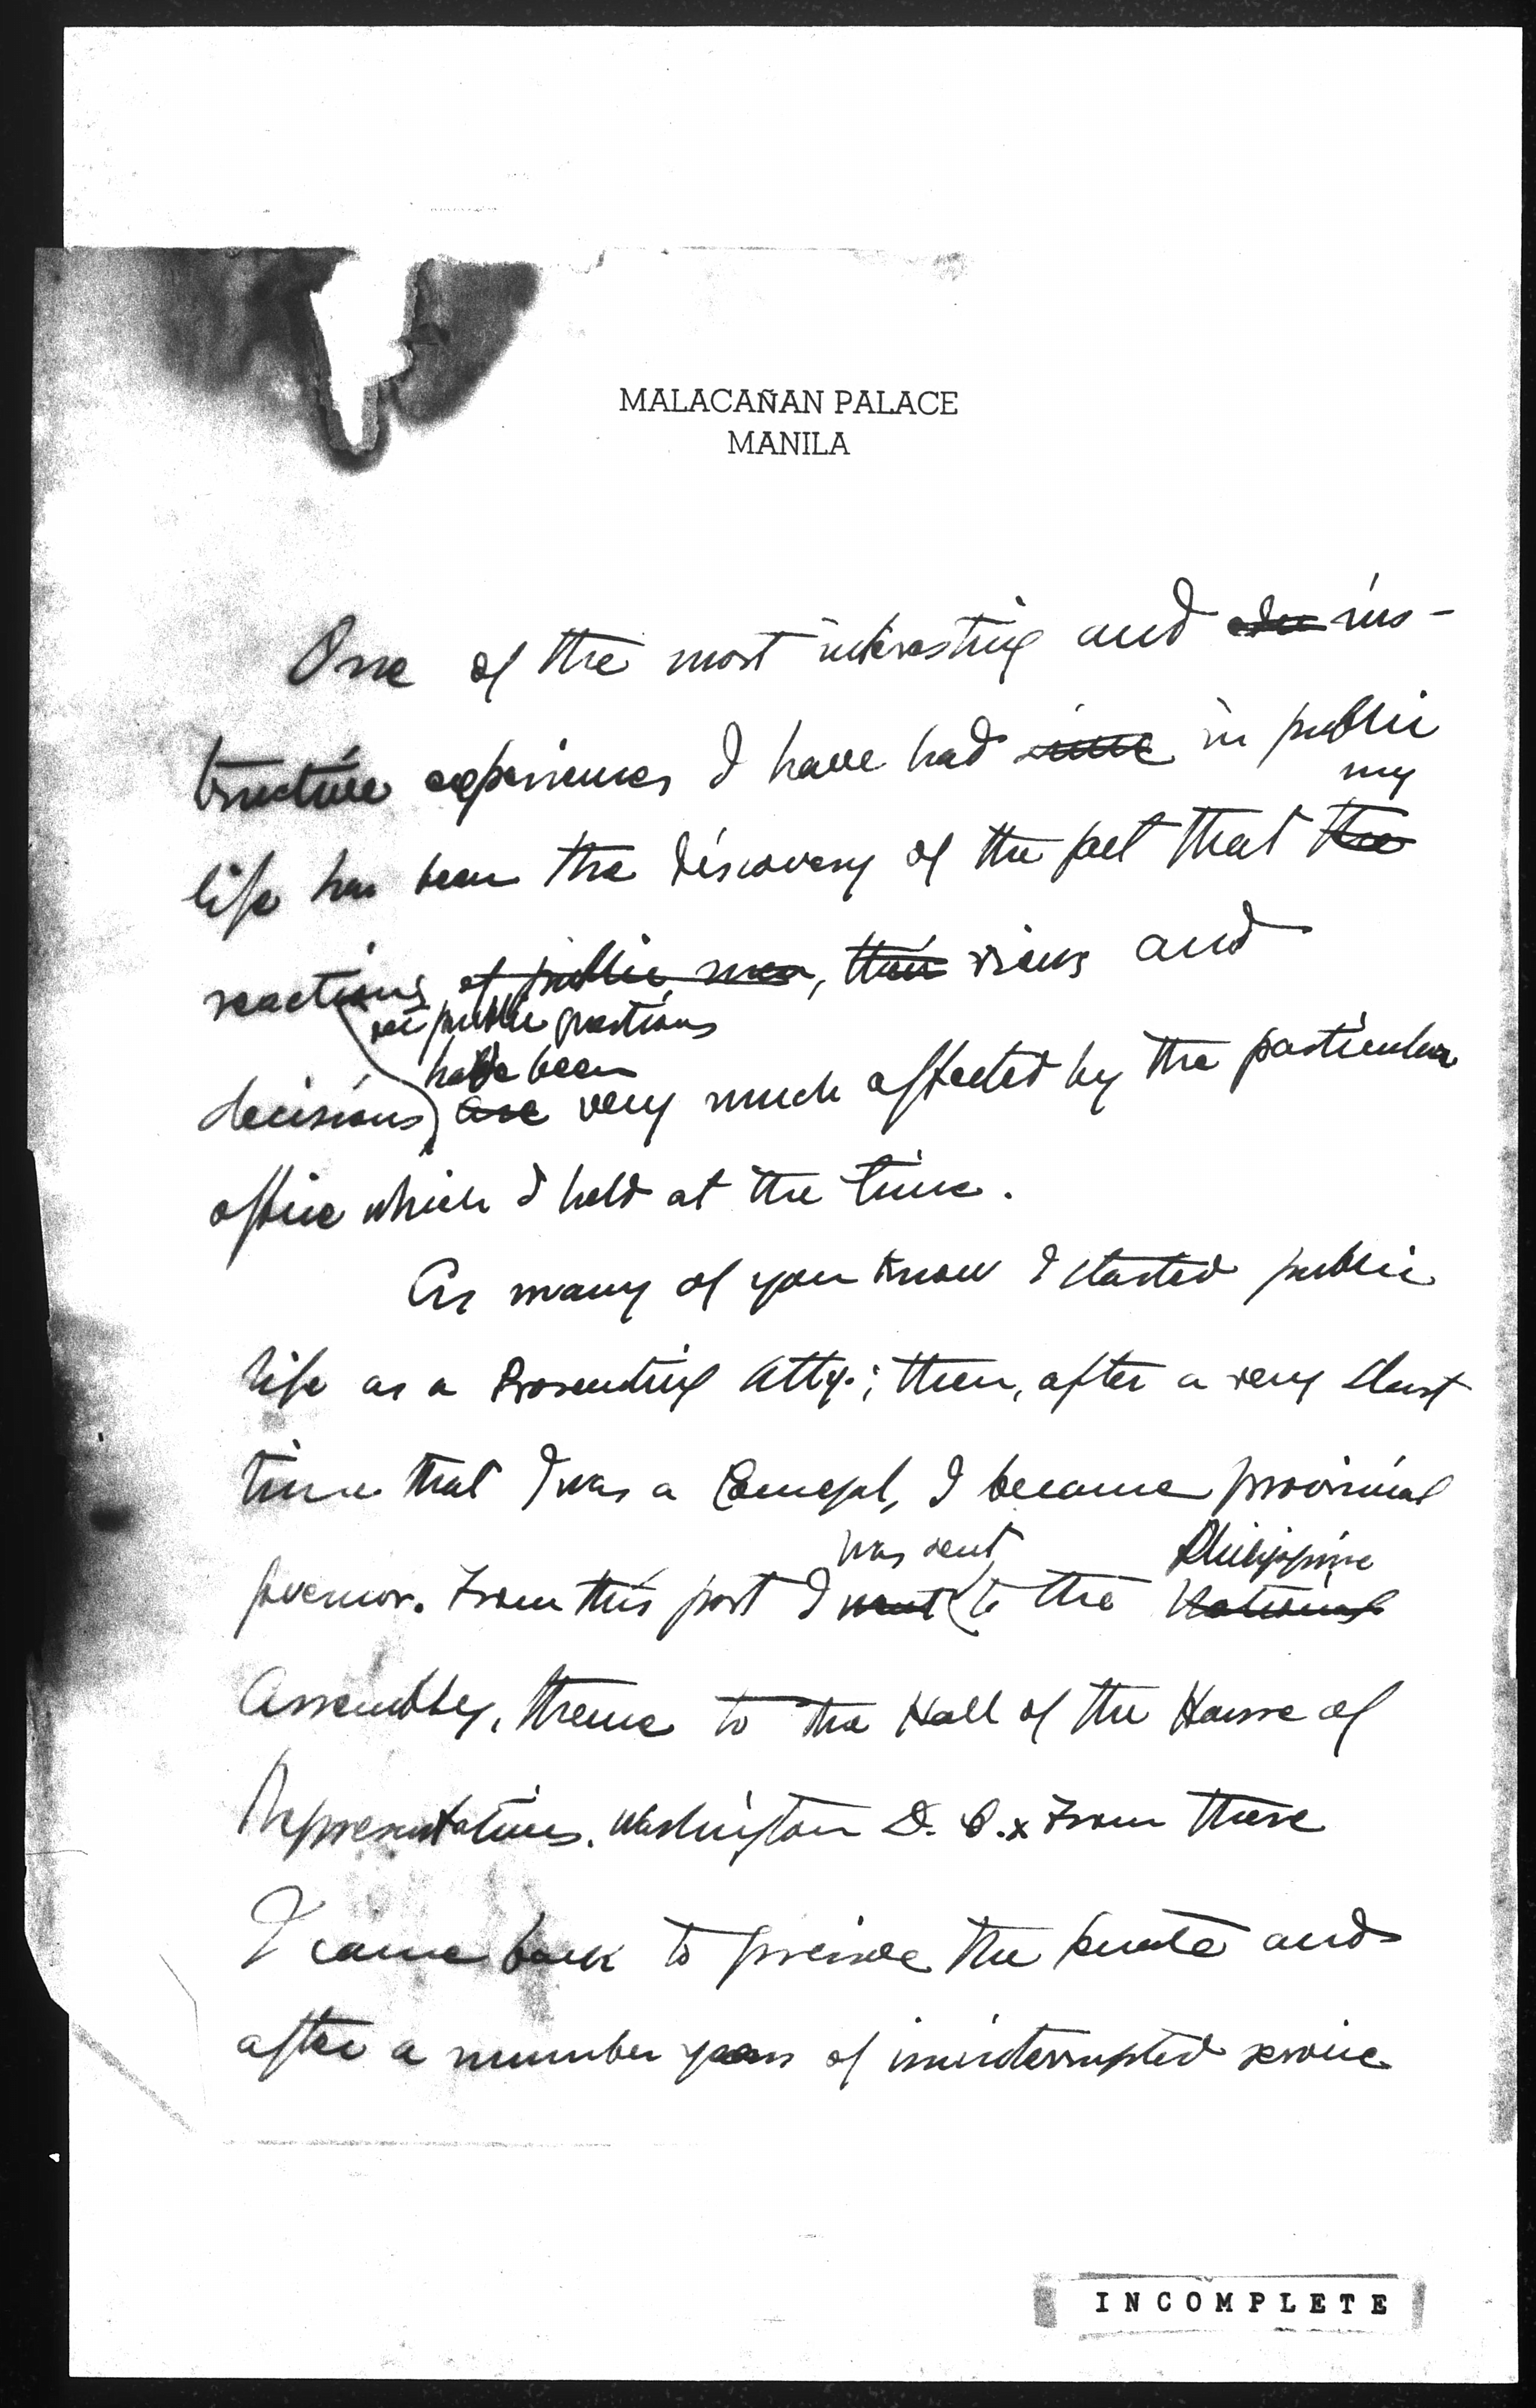 MALACAÑAN PALACE
MANILA
One of the most interesting and ins-
tructive experiences I have had in public
my
life has been the discovery of the fact that the
reactions of public men, their views and
on public questions
have been
decisions are very much affected by the particular
office which I held at the time.
As many of you know I started public
life as a Prosecuting Atty.; then, after a very short
time that I was a Concejal, I became provincial
was sent Philippine
governor. From this post I went to the National
Assembly, thence to the Hall of the House of
Representatives, Washington D. C. x From there
I came back to preside the Senate and
after a number years of uninterrupted service
INCOMPLETE